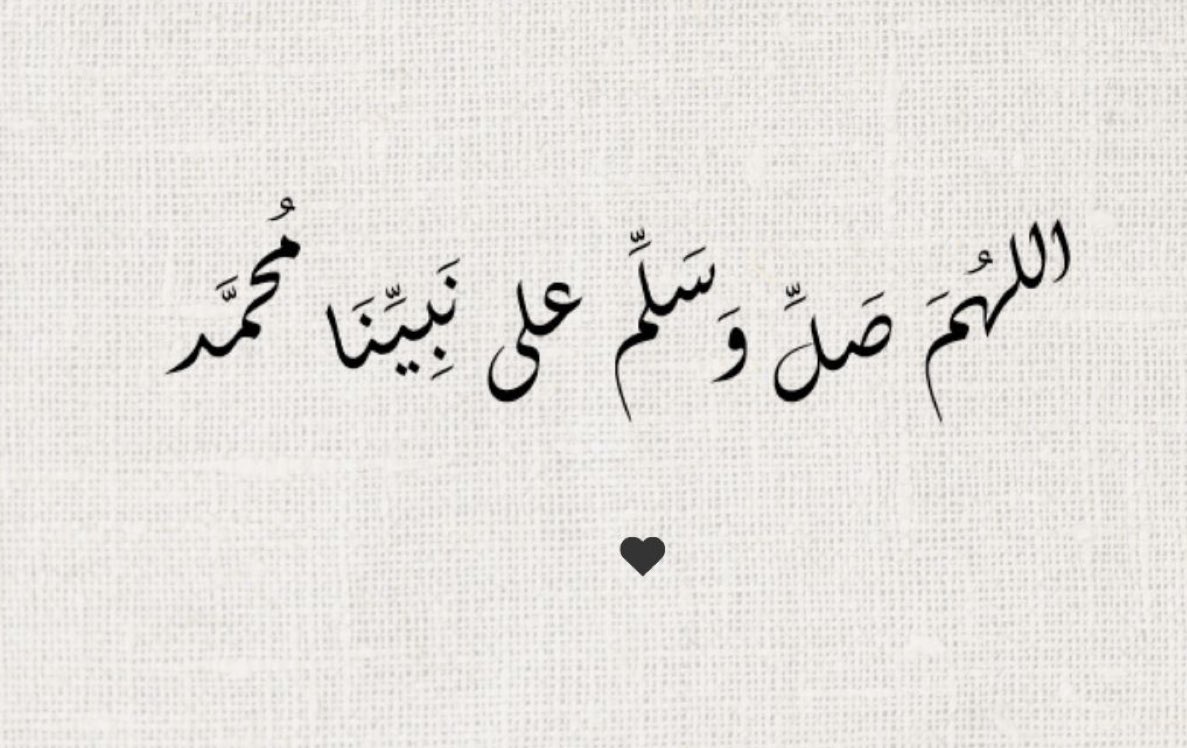 اللهُمَ صَلِّ وَسَلِّم على نَبِيِّنَا مُحمَّد